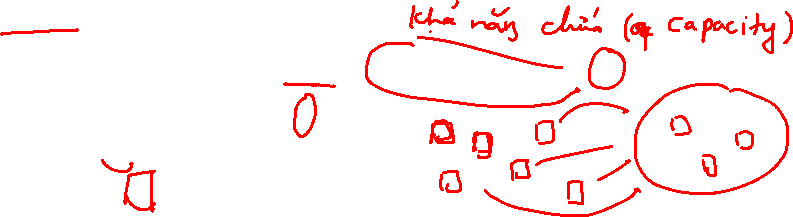 khả năng chứa (capacity)